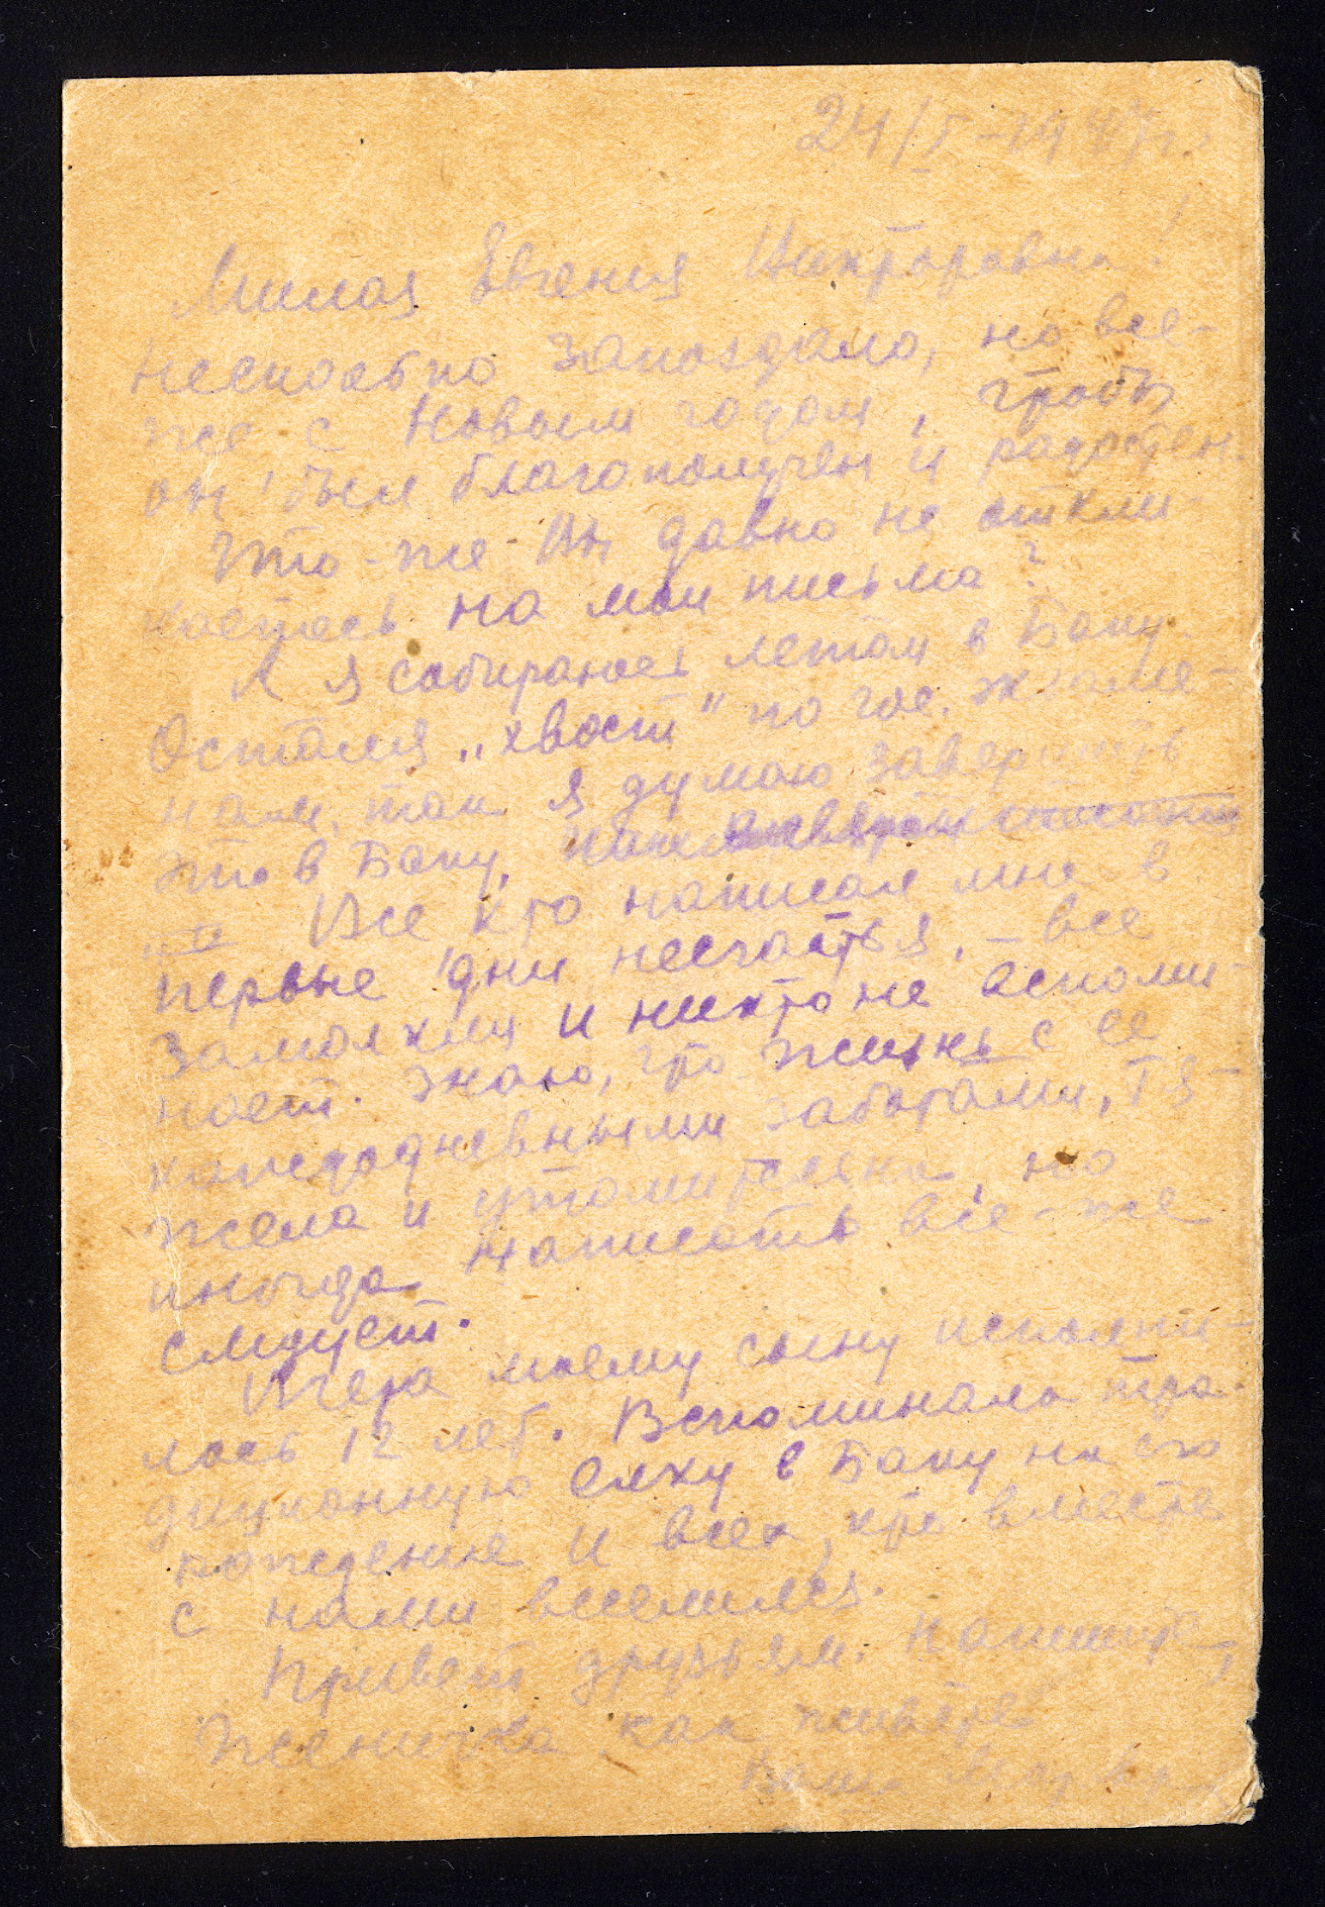 24/I-1947г.
Милая Евгения Викторовна!
Несколько запоздало, но все-
же с Новым годом, чтобы
он был благополучен и радостен.
Что-же Вы давно не откли-
каетесь на мои письма?
А я собираюсь летом в Баку.
Остался „хвост" по гос. экзаме-
нам, так я думаю завершить
это в Баку,
Все кто написал мне в
первые дни несчастья, – все
замолкли и никто не вспоми-
нает. Знаю, что жизнь с ее
каждодневными заботами, тя-
жела и утомительна, но
иногда написать все-же
следует.
Вчера моему сыну исполни-
лось 12 лет. Вспоминала тра-
диционную елку в Баку на его
рождение и всех, кто вместе
с нами веселился.
Привет друзьям. Напишите,
Женичка как живете
Ваша